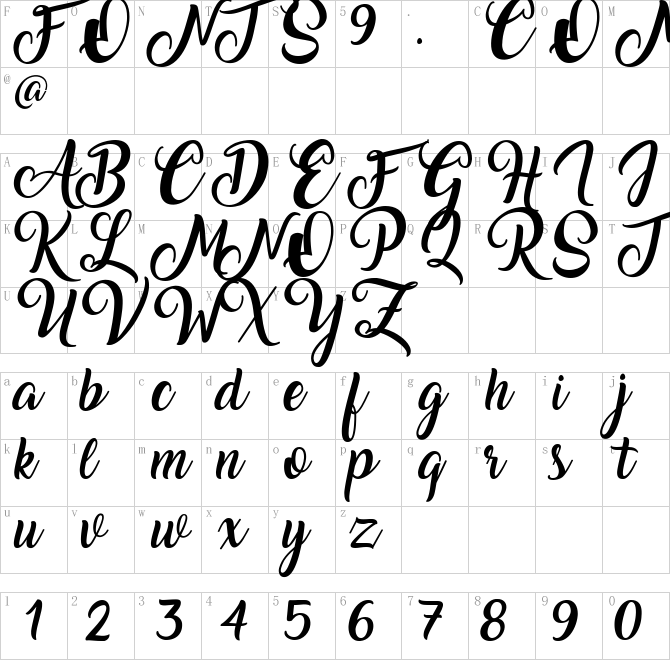 F O N T S 9 . C O M
@
A B C D E F G H I J
K L M N O P Q R S T
U V W X Y Z
a b c d e f g h i j
k l m n o p q r s t
u v w x y z
1 2 3 4 5 6 7 8 9 0